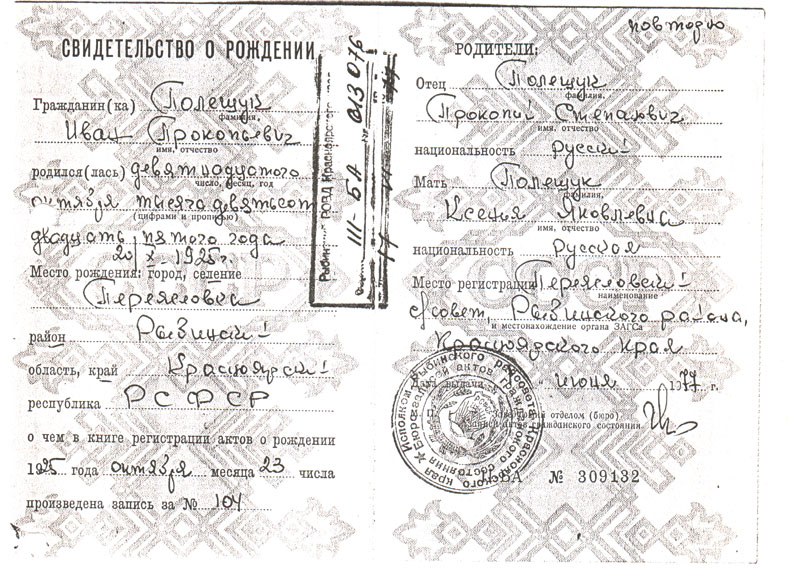 СВИДЕТЕЛЬСТВО О РОЖДЕНИИ
Гражданин(ка) Полещук
фамилия,
Иван Прокопьевич
имя, отчество
родился(лась) девятнадцатого
число, месяц, год
октября тысяча девятьсот
(цифрами и прописью)
двадцать пятого года
X - 1925г.
Место рождения: город, селение
Переясловка
район Рыбинский
область, край Красноярский
республика РСФСР
о чем в книге регистрации актов о рождении
1925 года октября месяца 23 числа
произведена запись за № 104
РОВД Красноярского
III-БА № 013076
повторно
РОДИТЕЛИ:
Отец Полещук
фамилия,
Прокопий Степанович
имя, отчество
национальность русский
Мать Полещук
фамилия,
Ксения Яковлевна
имя, отчество
национальность русская
Место регистрации Переясловский
наименование
с/совет, Рыбинского района,
и местонахождение органа ЗАГСа
Красноярского края
Дата выдачи июня 1977 г.
Заведующий отделом (бюро)
записи актов гражданского состояния
БА № 309132